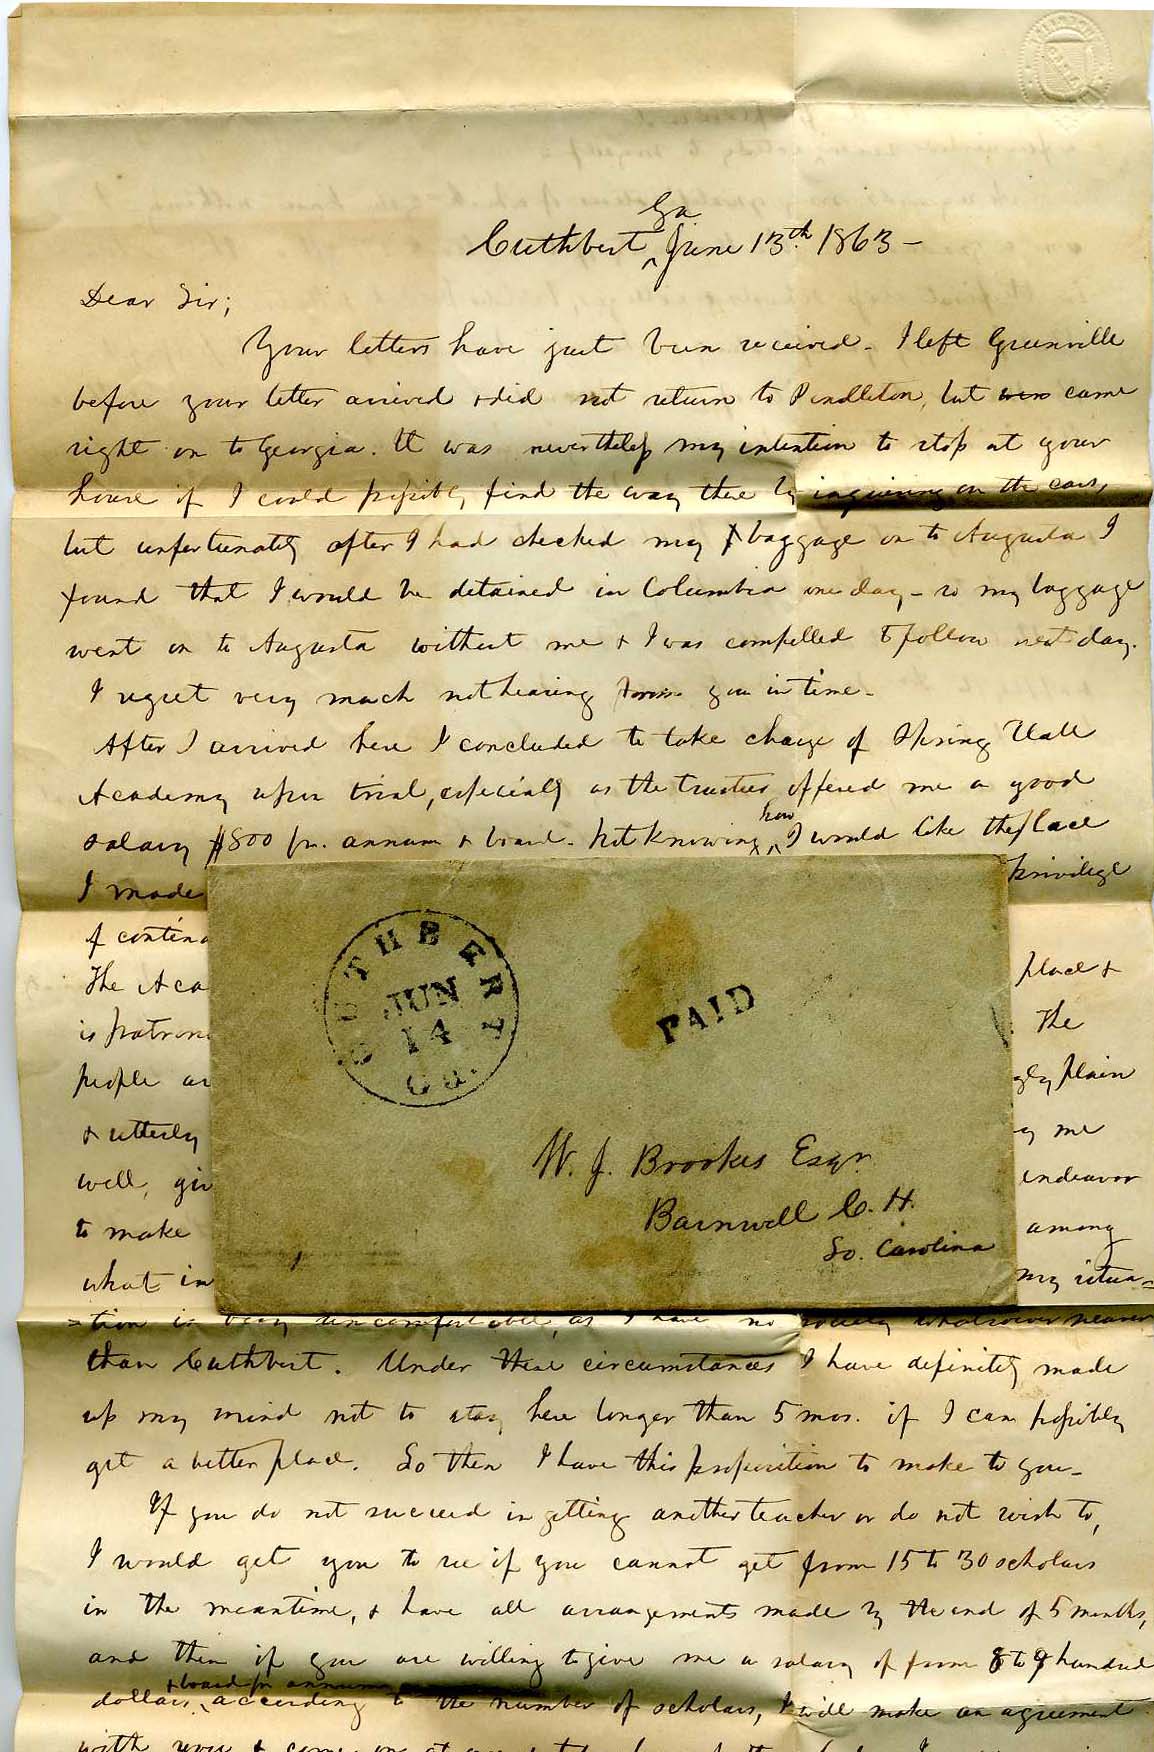 Ga
Cuthbert ‸ June 13th 1863 -
Dear Sir;
Your letters have just been received - I left Greenville
before your letter arrived + did not return to Pendleton, but came
right on to Georgia. It was nevertheless my intention to stop at your
house if I could possibly find the way there by inquiring on the cars,
but unfortunately after I had checked my baggage on to Augusta I
found that I would be detained in Columbia one day - so my baggage
went on to Augusta without me + I was compelled to follow next day.
I regret very much not hearing from you in time -
After I arrived here I concluded to take charge of Spring Vale
Academy upon trial, especially as the trustees offered me a good
how
salary $800 pr. annum + board - Not knowing ‸ I would like the place
I made privilege
of contin
The Aca place +
is patron The
people ar gly plain
+ utterly y me
well, giv endeavor
to make among
what in my situa=
=tion is very uncomfortable, as I have no society whatsoever nearer
than Cuthbert. Under these circumstances I have definitely made
up my mind not to stay here longer than 5 mos. if I can possibly
get a better place. So then I have this proposition to make to you -
If you do not succeed in getting another teacher or do not wish to,
I would get you to see if you cannot get from 15 to 30 scholars
in the meantime, + have all arrangements made by the end of 5 months,
and then if you are willing to give me a salary of from 8 to 9 hundred
+ board pr annum
dollars ‸ according to the number of scholars, I will make an agreement
with you + come on at
CUTHBERT
JUN
14
Ga.
PAID
W. J. Brookes Esqr.
Barnwell C. H.
So. Carolina